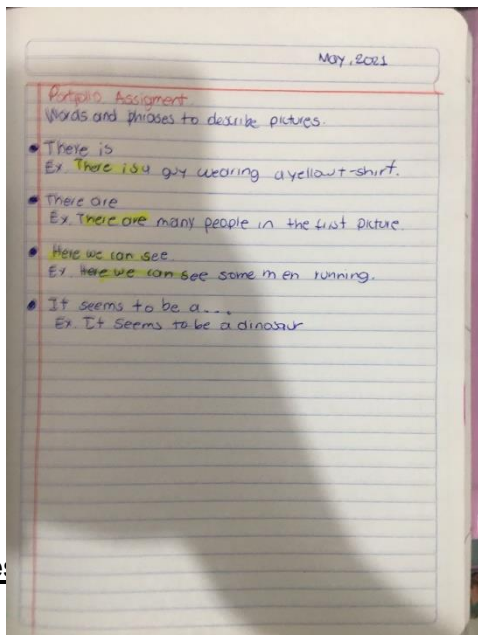 May, 2021
Portfolio Assigment
Words and phrases to describe pictures.
There is
Ex. There is a guy wearing a yellow t-shirt.
There are
Ex. There are many people in the first picture.
Here we can see.
Ex. Here we can see some men running.
It seems to be a...
Ex. It seems to be a dinosaur